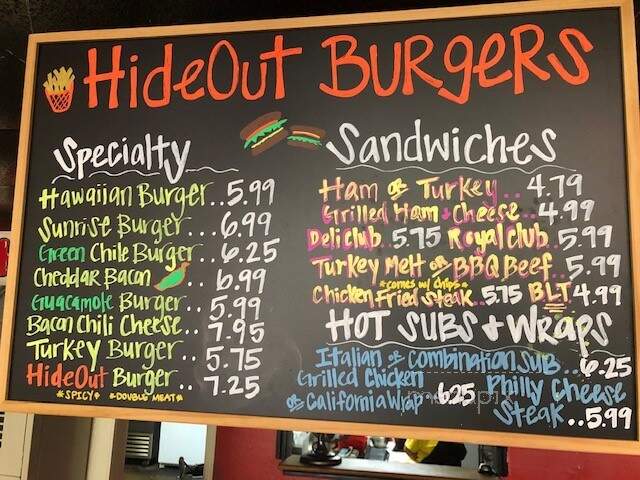 HideOut Burgers
Specialty
Hawaiian Burger..5.99
Sunrise Burger...6.99
Green Chile Burger..6.25
Cheddar Bacon .. 6.99
Guacamole Burger..5.99
Bacon Chili Cheese..7.95
Turkey Burger.. 5.75
HideOut Burger.. 7.25
*SPICY* *DOUBLE MEAT*
Sandwiches
Ham or Turkey... 4.79
Grilled Ham + Cheese...4.99
Deli Club. 5.75 Royal Club. 5.99
Turkey Melt or BBQ Beef..5.99
*comes w/ chips*
Chicken Fried Steak..5.75 BLT 4.99
HOT SUBS + WRAPS
Italian or Combination Sub...6.25
Grilled Chicken
or California Wrap 6.25
Philly Cheese
Steak..5.99